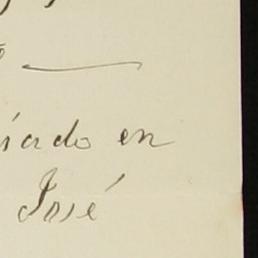 iado en
José